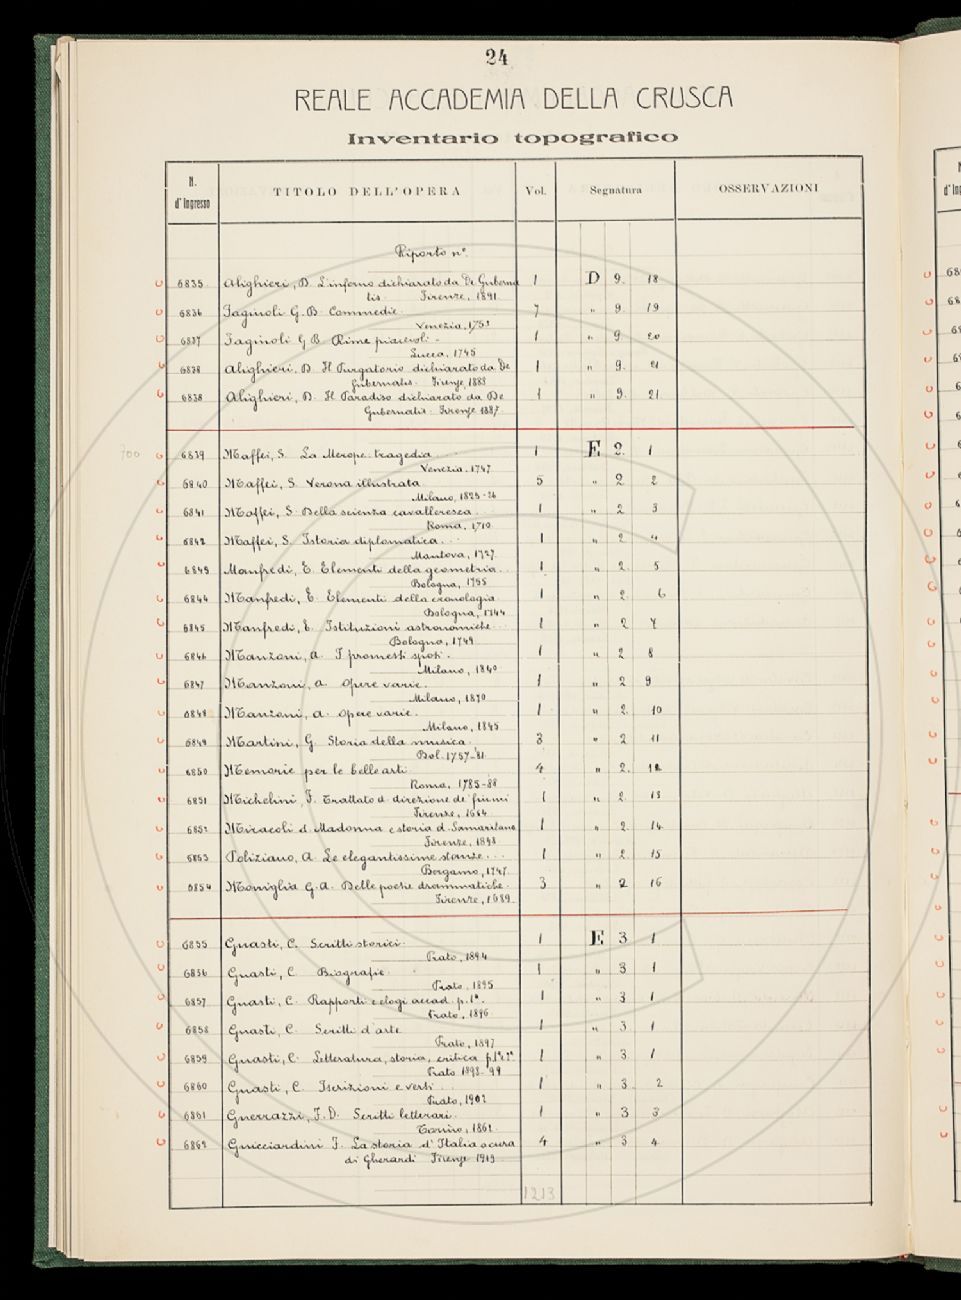 24
REALE ACCADEMIA DELLA CRUSCA
Inventario topografico
N. d'Ingresso TITOLO DELL'OPERA Vol. Segnatura OSSERVAZIONI
Riporto n°.
6835 Alighieri, D. L'inferno dichiarato da De Guberna 1 D 9. 18
tis. Firenze, 1891.
6836 Fagiuoli G. B. Commedie. 7 " 9. 19
Venezia, 1753
6837 Fagiuoli G. B. Rime piacevoli - 1 " 9 20
Lucca, 1745
6838 Alighieri, D. Il Purgatorio dichiarato da De 1 " 9. 21
Gubernatis. Firenze, 1888
6838 Alighieri, D. Il Paradiso dichiarato da De 1 " 9. 21
Gubernatis. Firenze 1887
700 6839 Maffei, S. La Merope. tragedia 1 E 2. 1
Venezia. 1747
6840 Maffei, S. Verona illustrata 5 " 2 2
Milano, 1825-26
6841 Maffei, S. Della scienza cavalleresca 1 " 2 3
Roma, 1710
6842 Maffei, S. Istoria diplomatica 1 " 2 4
Mantova, 1727
6843 Manfredi, E. Elementi della geometria 1 " 2. 5
Bologna, 1755
6844 Manfredi, E. Elementi della cronologia 1 " 2. 6
Bologna, 1744
6845 Manfredi, E. Istituzioni astronomiche 1 " 2 7
Bologna, 1749
6846 Manzoni, A. I promessi sposi. 1 " 2 8
Milano, 1840
6847 Manzoni, A. Opere varie. 1 " 2 9
Milano, 1870
6848 Manzoni, A. Opere varie. 1 " 2. 10
Milano, 1845
6849 Martini, G. Storia della musica. 3 " 2 11
Bol. 1757-81
6850 Memorie per le belle arti 4 " 2. 12
Roma, 1785-88
6851 Michelini, F. Trattato d. direzione de' fiumi 1 " 2. 13
Firenze, 1664
6852 Miracoli d. Madonna e storia d. Samaritana 1 " 2. 14
Firenze, 1843
6853 Poliziano, A. Le elegantissime stanze. 1 " 2. 15
Bergamo, 1747
6854 Moniglia G. A. Delle poesie drammatiche. 3 " 2 16
Firenze, 1689
6855 Guasti, C. Scritti storici. 1 E 3 1
Prato, 1894
6856 Guasti, C. Biografie. 1 " 3 1
Prato, 1895
6857 Guasti, C. Rapporti e elogi accad. p. 1a. 1 " 3 1
Prato, 1896
6858 Guasti, C. Scritti d'arte 1 " 3 1
Prato, 1897
6859 Guasti, C. Letteratura, storia, critica p. 1a 2a 1 " 3. 1
Prato 1898-99
6860 Guasti, C. Iscrizioni e versi 1 " 3. 2
Prato, 1902
6861 Guerrazzi, F. D. Scritti letterari. 1 " 3 3
Torino, 1862
6862 Guicciardini F. La storia d'Italia a cura 4 " 3 4
di Gherardi Firenze 1919
1213